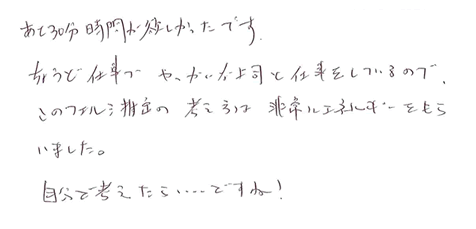 あと30分時間が欲しかったです。
ちょうど仕事で やっかいな上司と仕事をしているので、
このフェルミ推定の考え方は 非常にエネルギーをもら
いました。
自分で考えたらい……ですね!